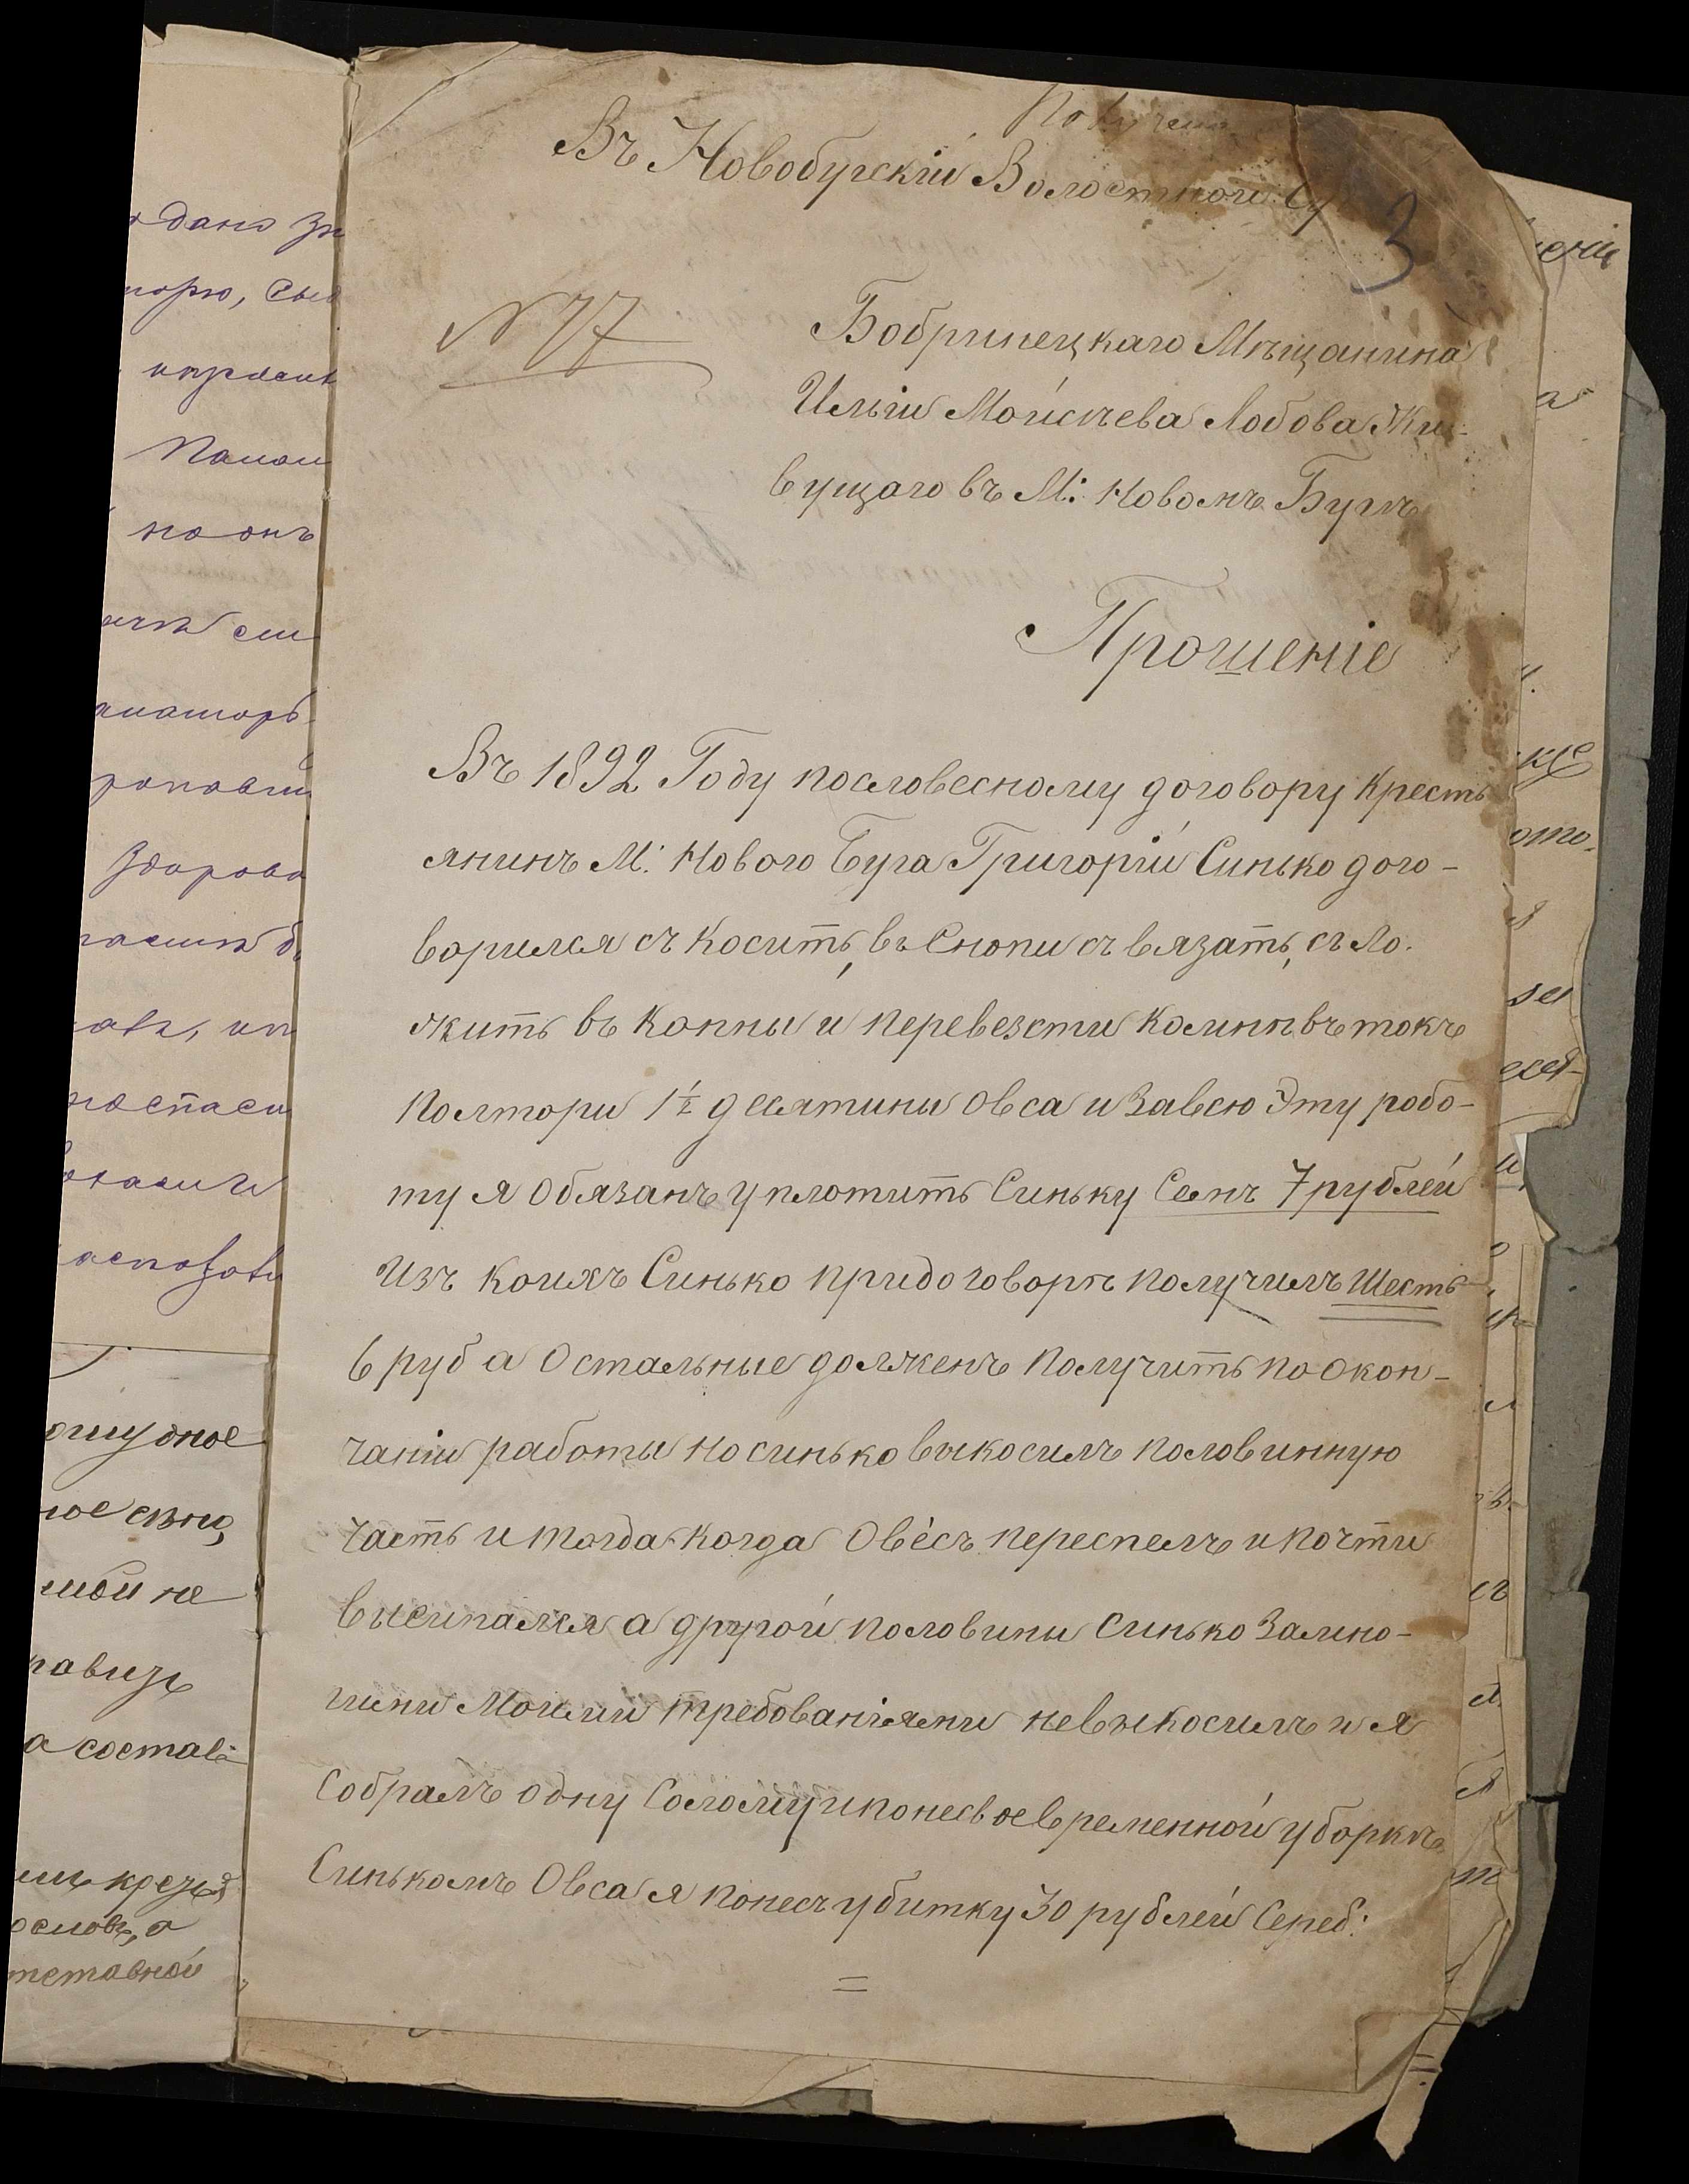 Получено
Въ Новобугскій Волостной Су
3
№ 77
Бобринецкаго Мѣщанина
Ильи Мойсѣева Лобова Жи-
вущаго въ М: Новомъ Бугѣ
Прошеніе
Въ 1892 Году пословесному договору Кресть
янинъ М: Нового Буга Григорій Синько дого-
ворился съ Косить, въ Снопи съ вязать, съ Ло-
жить въ Копны и перевезти комнѣ въ токъ
Полтори 1½ десятини Овса и Завсю Эту робо-
ту я Обязанъ уплотить Синьку Семъ 7 рублей
Изъ коихъ Синько придоговорѣ получилъ Шесть
6 руб а Остальные долженъ Получить по Окон-
чаніи работы но синько выкосилъ половинную
часть и тогда когда Овесъ переспелъ и почти
высипался а другой половины Синько Замно-
гими Моими требованіями невыкосилъ и я
Собралъ одну Солому и понесвоевременной уборкѣ
Синькомъ Овса я понесъ убитку 30 рублей Сереб:
одано
торю,
но онъ
Здорово
ое
мой не
а состав